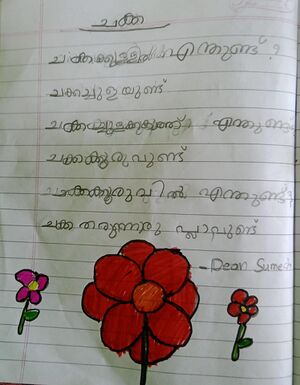 ചക്ക
ചക്കക്കുള്ളിൽ എന്തുണ്ട് ?
ചക്കച്ചുളയുണ്ട്
ചക്കച്ചുളക്കകത്ത് എന്തുണ്ട്
ചക്കക്കുരുവുണ്ട്
ചക്കക്കുരുവിൽ എന്തുണ്ട് ?
ചക്ക തരുന്നൊരു പ്ലാവുണ്ട്
- Dean Sumesh